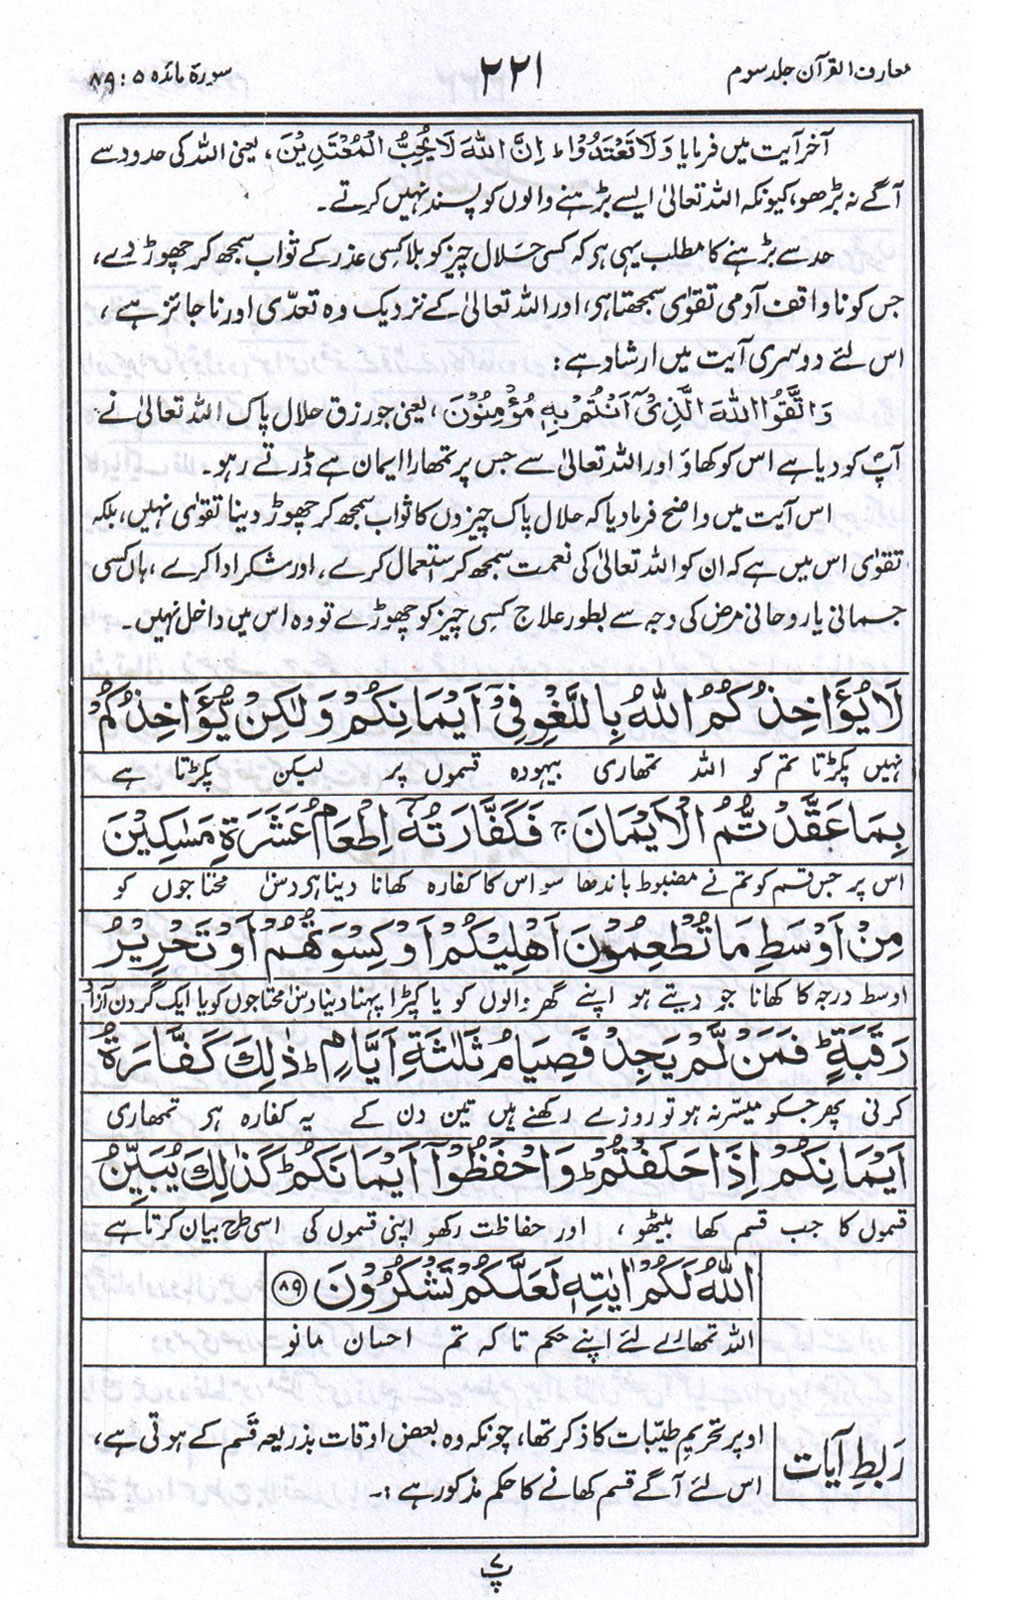 معارف القرآن جلد سوم
۲۲۱
سورۃ مائدہ ۵ : ۸۹
آخر آیت میں فرمایا وَلَا تَعْتَدُوْا ؕ اِنَّ اللّٰهَ لَا يُحِبُّ الْمُعْتَدِيْنَ ، یعنی اللہ کی حدود سے
آگے نہ بڑھو، کیونکہ اللہ تعالیٰ ایسے بڑھنے والوں کو پسند نہیں کرتے ۔
حد سے بڑھنے کا مطلب یہی ہر کہ کسی حلال چیز کو بلا کسی عذر کے ثواب سمجھ کر چھوڑ دے ،
جس کو ناواقف آدمی تقوٰی سمجھتا ہی، اور اللہ تعالیٰ کے نزدیک وہ تعدّی اور ناجائز ہے ،
اس لئے دوسری آیت میں ارشاد ہے :
وَاتَّقُوا اللّٰهَ الَّذِىْٓ اَنْتُمْ بِهٖ مُؤْمِنُوْنَ ، یعنی جو رزق حلال پاک اللہ تعالیٰ نے
آپؐ کو دیا ہے اس کو کھاؤ اور اللہ تعالیٰ سے جس پر تمھارا ایمان ہے ڈرتے رہو ۔
اس آیت میں واضح فرمادیا کہ حلال پاک چیزوں کا ثواب سمجھ کر چھوڑ دینا تقوٰی نہیں، بلکہ
تقوٰی اس میں ہے کہ ان کو اللہ تعالیٰ کی نعمت سمجھ کر استعمال کرے ، اور شکر ادا کرے ، ہاں کسی
جسمانی یا روحانی مرض کی وجہ سے بطور علاج کسی چیز کو چھوڑے تو وہ اس میں داخل نہیں ۔
لَا يُؤَاخِذُكُمُ اللّٰهُ بِاللَّغْوِ فِىْٓ اَيْمَانِكُمْ وَلٰكِنْ يُّؤَاخِذُكُمْ
نہیں پکڑتا تم کو اللہ تمھاری بیہودہ قسموں پر لیکن پکڑتا ہے
بِمَا عَقَّدْتُّمُ الْاَيْمَانَ ۚ فَكَفَّارَتُهٗٓ اِطْعَامُ عَشَرَةِ مَسٰكِيْنَ
اس پر جس قسم کو تم نے مضبوط باندھا سو اس کا کفارہ کھانا دینا ہر دس محتاجوں کو
مِنْ اَوْسَطِ مَا تُطْعِمُوْنَ اَهْلِيْكُمْ اَوْ كِسْوَتُهُمْ اَوْ تَحْرِيْرُ
اوسط درجہ کا کھانا جو دیتے ہو اپنے گھر والوں کو یا کپڑا پہنا دینا دس محتاجوں کو یا ایک گردن آزاد
رَقَبَةٍ ؕ فَمَنْ لَّمْ يَجِدْ فَصِيَامُ ثَلٰثَةِ اَيَّامٍ ؕ ذٰلِكَ كَفَّارَةُ
کرنی پھر جسکو میسر نہ ہو تو روزے رکھنے ہیں تین دن کے یہ کفارہ ہر تمھاری
اَيْمَانِكُمْ اِذَا حَلَفْتُمْ ؕ وَاحْفَظُوْٓا اَيْمَانَكُمْ ؕ كَذٰلِكَ يُبَيِّنُ
قسموں کا جب قسم کھا بیٹھو ، اور حفاظت رکھو اپنی قسموں کی اسی طرح بیان کرتا ہے
اللّٰهُ لَكُمْ اٰيٰتِهٖ لَعَلَّكُمْ تَشْكُرُوْنَ ۸۹
اللہ تمھارے لئے اپنے حکم تاکہ تم احسان مانو
ربطِ آیات
اوپر تحریمِ طیّبات کا ذکر تھا، چونکہ وہ بعض اوقات بذریعہ قَسم کے ہوتی ہے ،
اس لئے آگے قسم کھانے کا حکم مذکور ہے :۔